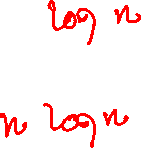 log n
n log n